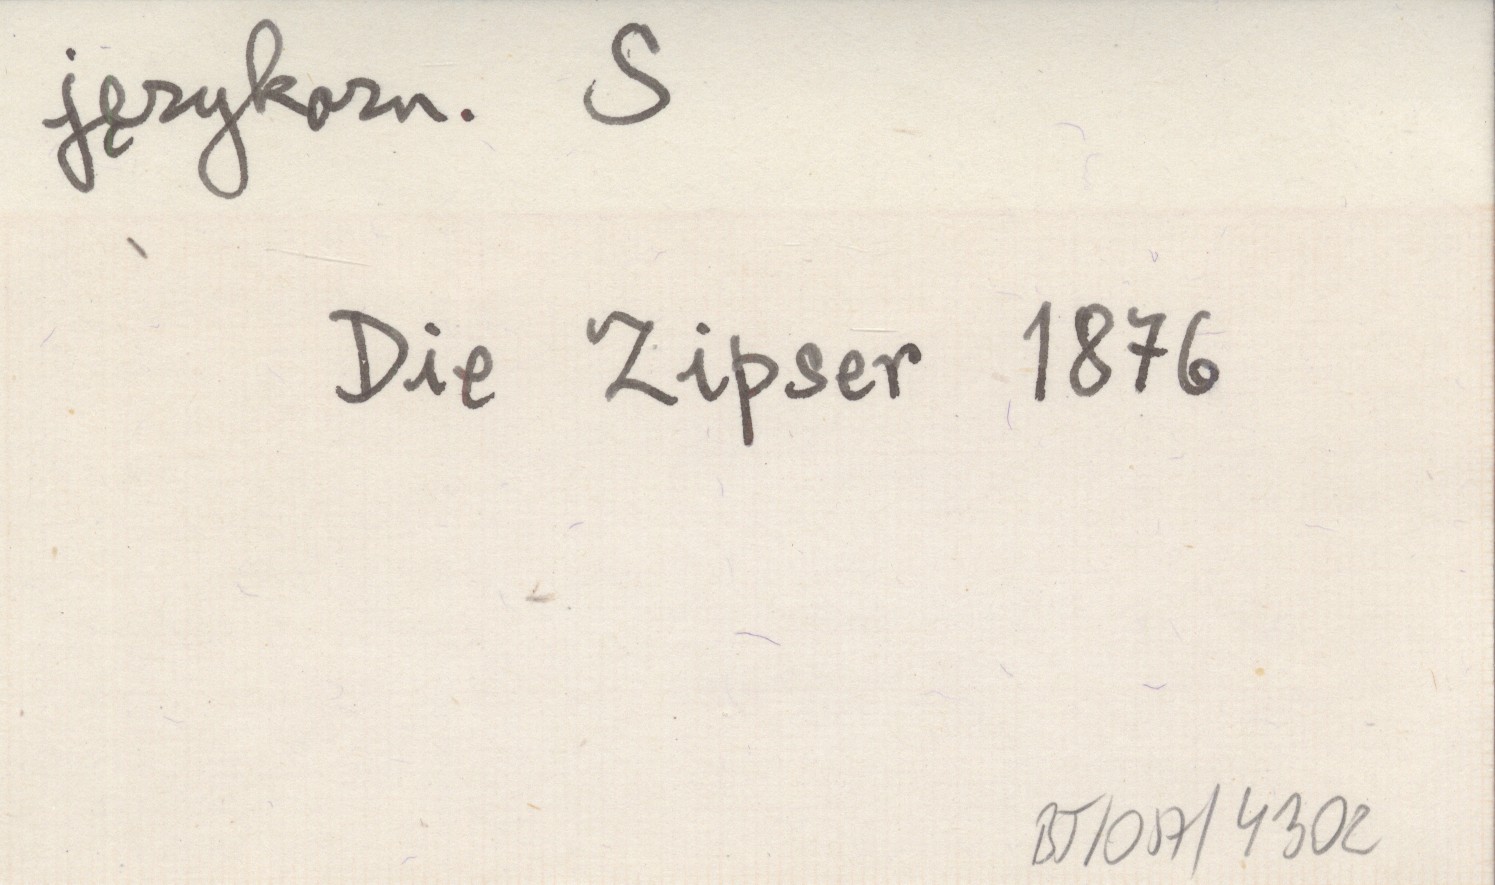 językozn. S
Die Zipser 1876
BJ/087/4302